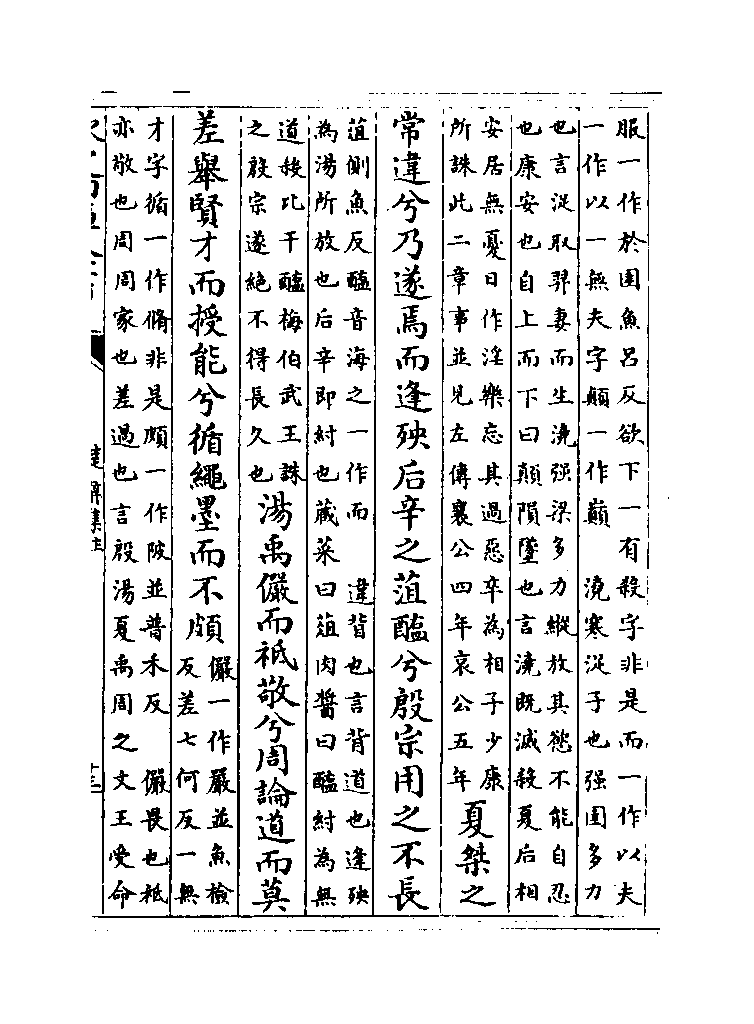 服一作於圉魚呂反欲下一有殺字非是而一作以夫
一作以一無夫字顛一作巔　澆寒浞子也强圉多力
也言浞取羿妻而生澆强梁多力縱放其慾不能自忍
也康安也自上而下曰顛隕墜也言澆既滅殺夏后相
安居無憂日作淫樂忘其過惡卒為相子少康
所誅此二章事並見左傳襄公四年哀公五年
夏桀之
常違兮乃遂焉而逢殃后辛之菹醢兮殷宗用之不長
菹側魚反醢音海之一作而　違背也言背道也逢殃
為湯所放也后辛即紂也藏菜曰菹肉醬曰醢紂為無
道殺比干醢梅伯武王誅
之殷宗遂絕不得長久也
湯禹儼而祗敬兮周論道而莫
差舉賢才而授能兮循繩墨而不頗
儼一作嚴並魚檢
反差七何反一無
才字循一作脩非是頗一作陂並普禾反　儼畏也祗
亦敬也周周家也差過也言殷湯夏禹周之文王受命
楚辭集注